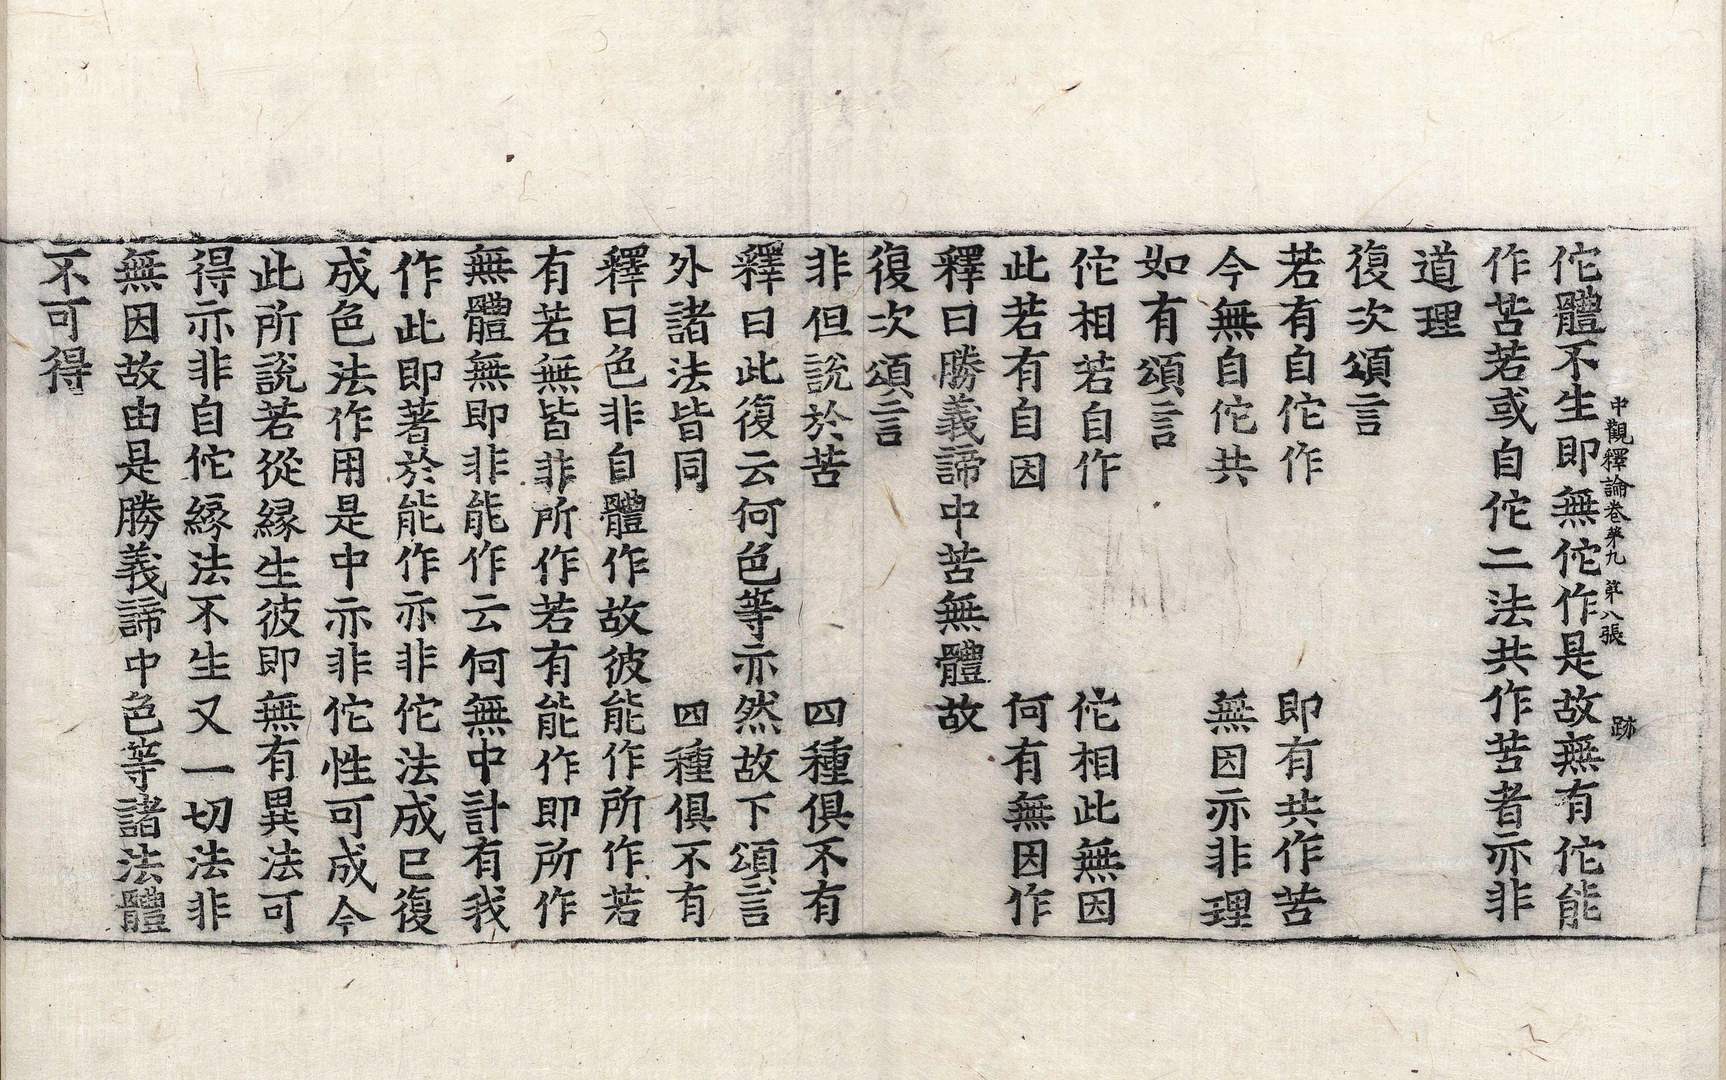 中觀釋論卷第九　第八張　跡
佗體不生即無佗作是故無有佗能
作苦若或自佗二法共作苦者亦非
道理
復次頌言
若有自佗作　即有共作苦
今無自佗共　無因亦非理
如有頌言
佗相若自作　佗相此無因
此若有自因　何有無因作
釋曰勝義諦中苦無體故
復次頌言
非但說於苦　四種俱不有
釋曰此復云何色等亦然故下頌言
外諸法皆同　四種俱不有
釋曰色非自體作故彼能作所作若
有若無皆非所作若有能作即所作
無體無即非能作云何無中計有我
作此即著於能作亦非佗法成已復
成色法作用是中亦非佗性可成今
此所說若從緣生彼即無有異法可
得亦非自佗緣法不生又一切法非
無因故由是勝義諦中色等諸法體
不可得